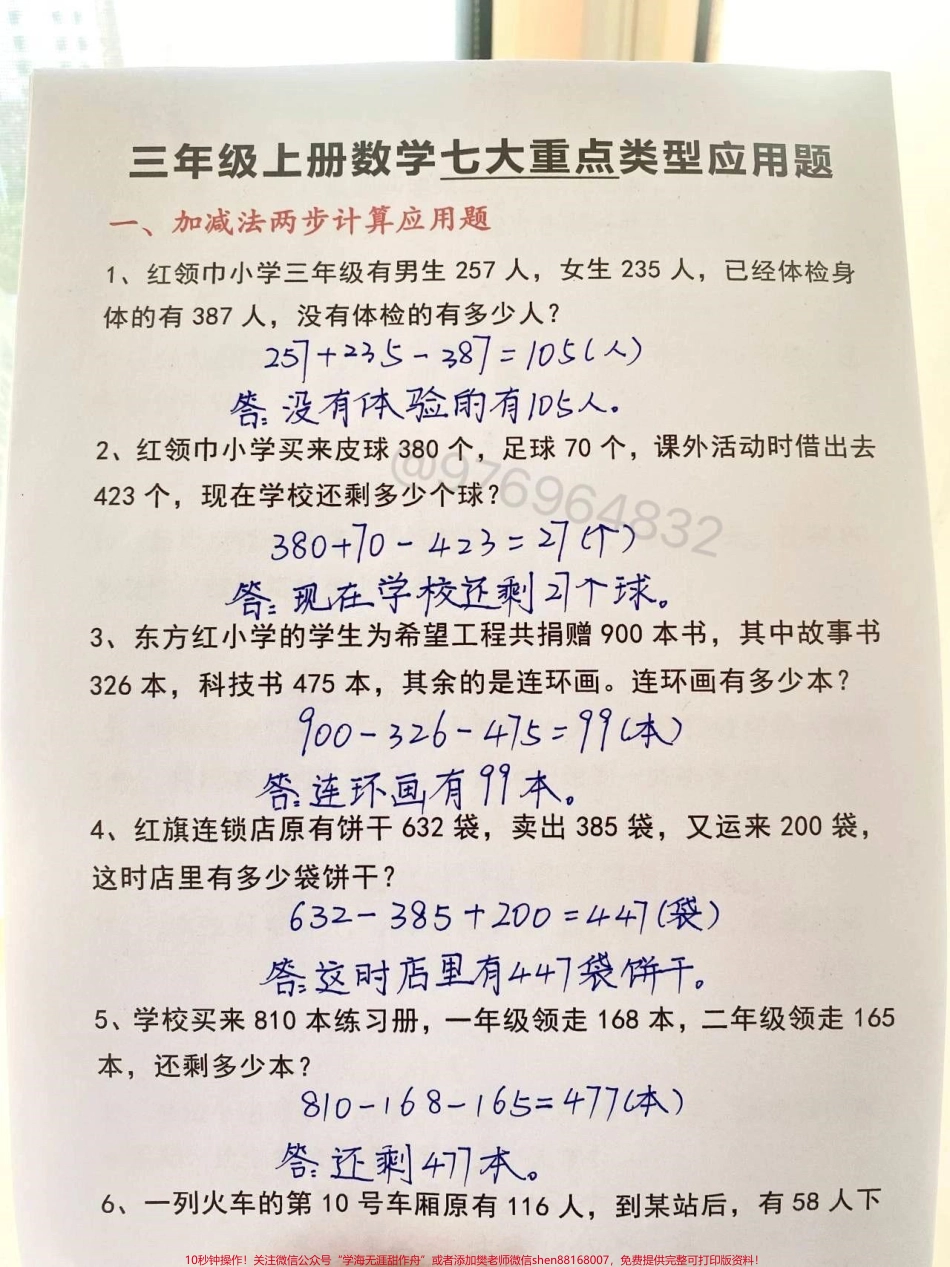 三年级上册数学七大重点类型应用题
一、加减法两步计算应用题
1、红领巾小学三年级有男生 257 人，女生 235 人，已经体检身
体的有 387 人，没有体检的有多少人？
257+235-387=105(人)
答：没有体验的有105人。
2、红领巾小学买来皮球 380 个，足球 70 个，课外活动时借出去
@976964832
423 个，现在学校还剩多少个球？
380+70-423=27(个)
答：现在学校还剩27个球。
3、东方红小学的学生为希望工程共捐赠 900 本书，其中故事书
326 本，科技书 475 本，其余的是连环画。连环画有多少本？
900-326-475=99(本)
答：连环画有99本。
4、红旗连锁店原有饼干 632 袋，卖出 385 袋，又运来 200 袋，
这时店里有多少袋饼干？
632-385+200=447(袋)
答：这时店里有447袋饼干。
5、学校买来 810 本练习册，一年级领走 168 本，二年级领走 165
本，还剩多少本？
810-168-165=477(本)
答：还剩477本。
6、一列火车的第 10 号车厢原有 116 人，到某站后，有 58 人下
10秒钟操作！关注微信公众号“学海无涯甜作舟”或者添加樊老师微信shen88168007，免费提供完整可打印版资料！